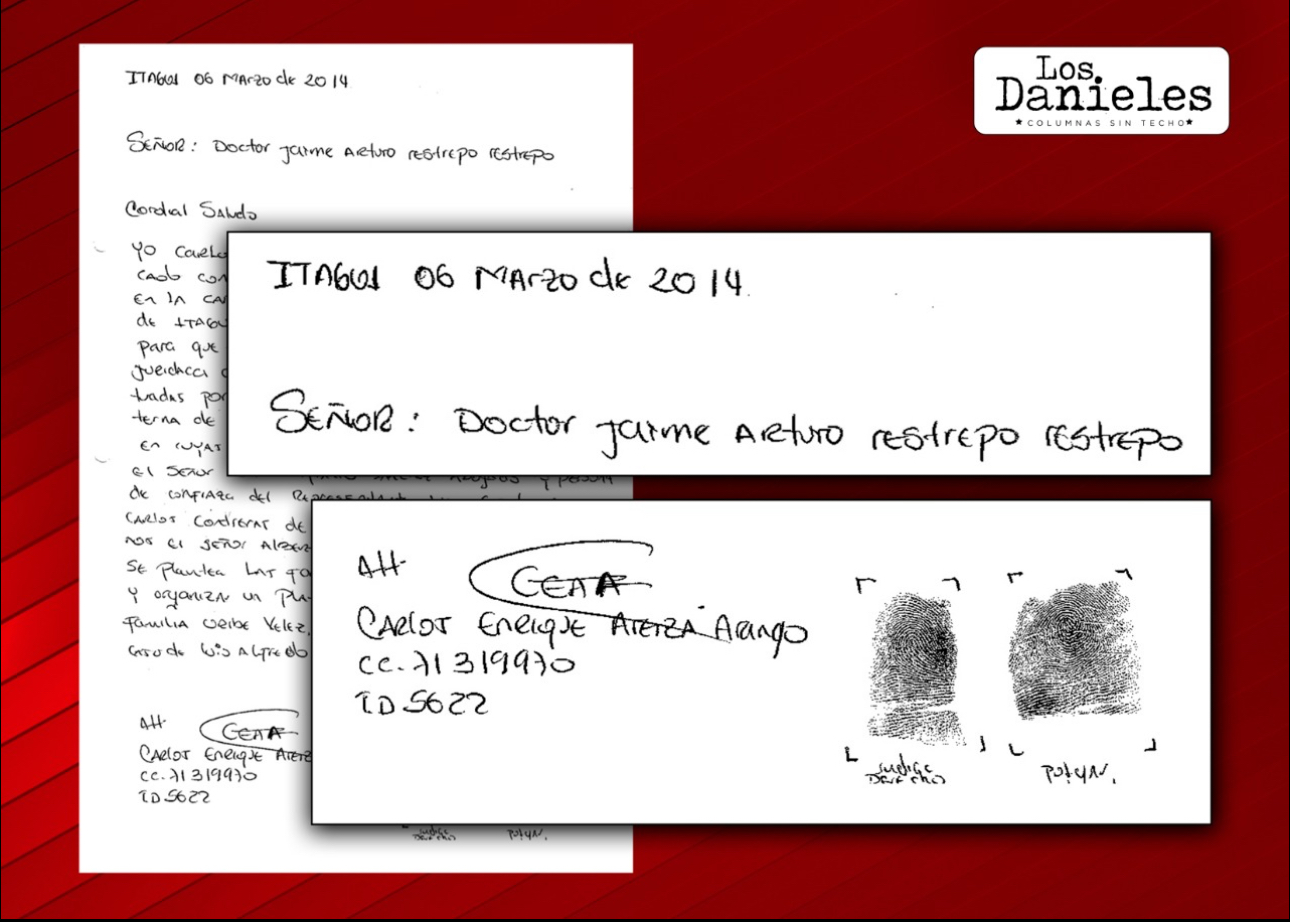 ITAGUI 06 Marzo de 2014
SEÑOR: Doctor jaime Arturo restrepo restrepo
Cordial Saludo
YO Carlo
cado con
en la ca
de ITAGU
para que
tuadas por
terna de
en cuyas
el Señor
de confiaza del
Carlos Contreras de
nos el señor Alber
Se Plantea las
y organizar un Pla
familia Uribe Velez,
Luis Alfredo
Att.
CEAA
Carlos Enrique
CC. 71319970
TD 5622
indice
Derecho
Pulgar.
Los
Danieles
★COLUMNAS SIN TECHO★
ITAGUI 06 Marzo de 2014
SEÑOR: Doctor jaime Arturo restrepo restrepo
Att.
CEAA
Carlos Enrique Areiza Arango
CC. 71319970
TD 5622
indice
Derecho
Pulgar.